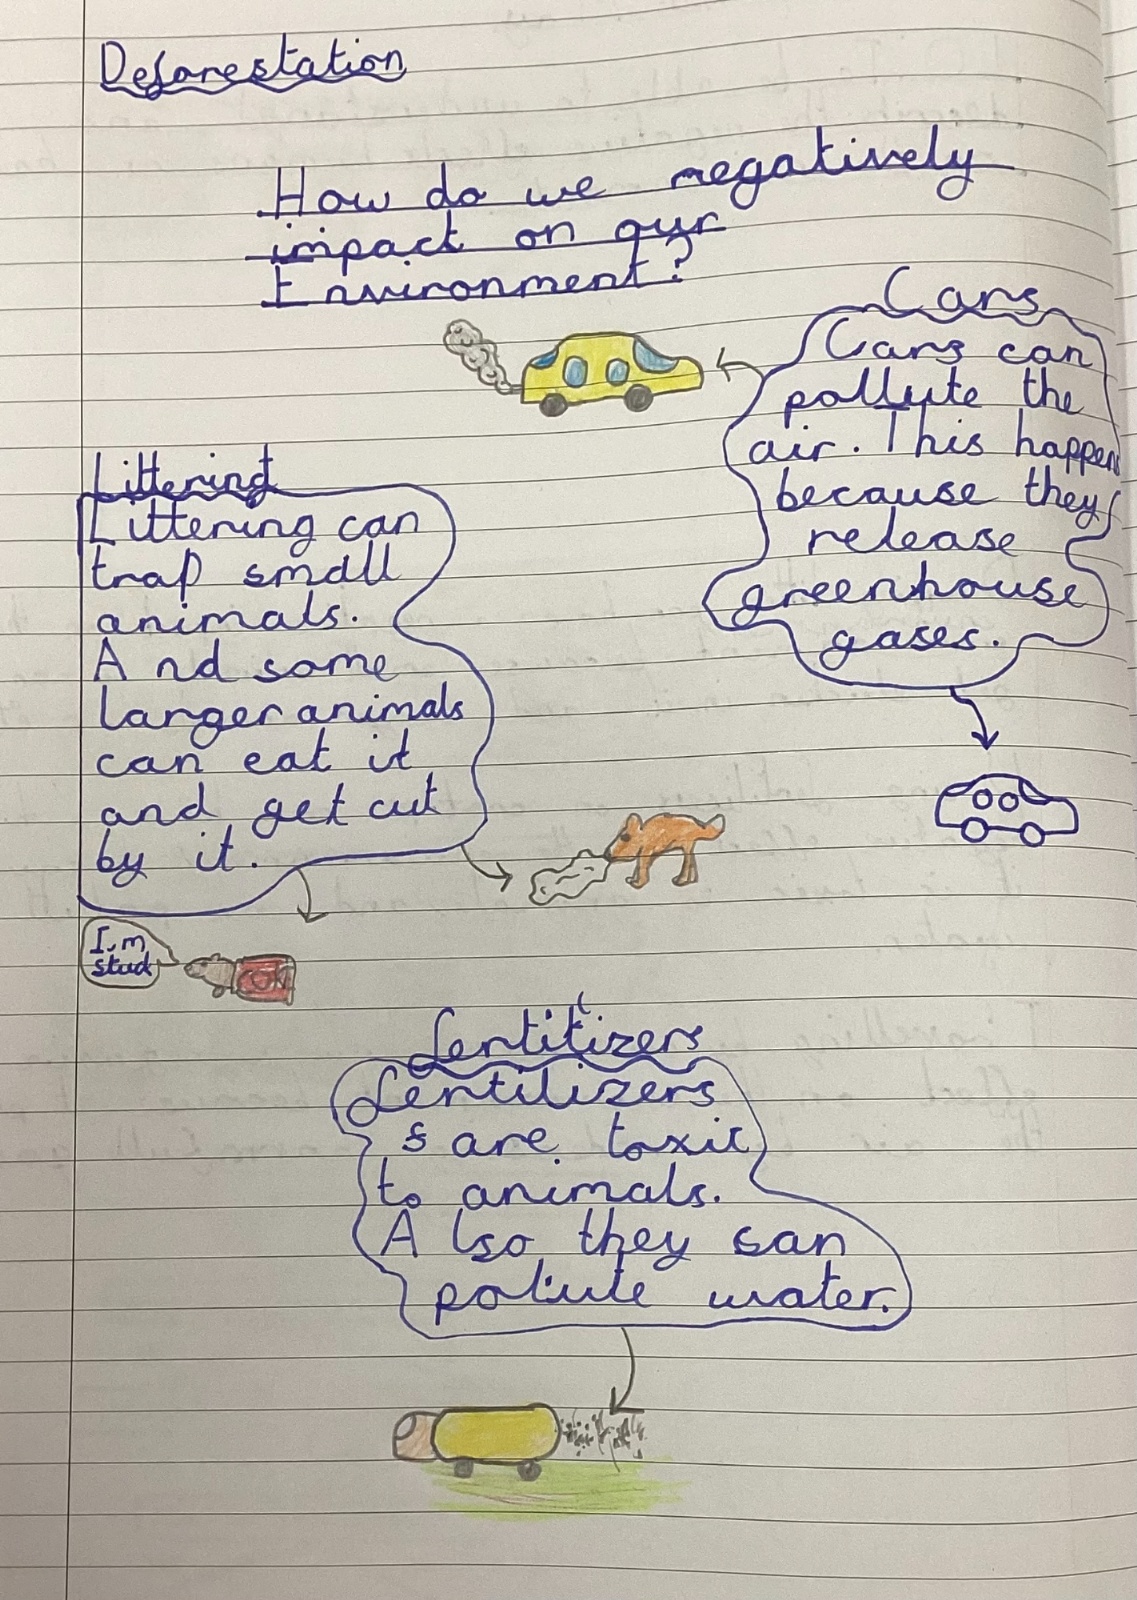 Deforestation
How do we negatively
impact on our
Environment?
Cars
Cars can
pollute the
air. This happens
because they
release
greenhouse
gases.
Littering
Littering can
trap small
animals.
And some
larger animals
can eat it
and get cut
by it.
I,m
stud
COK
Fertilizers
Fertilizers
are toxic
to animals.
Also they can
pollute water.